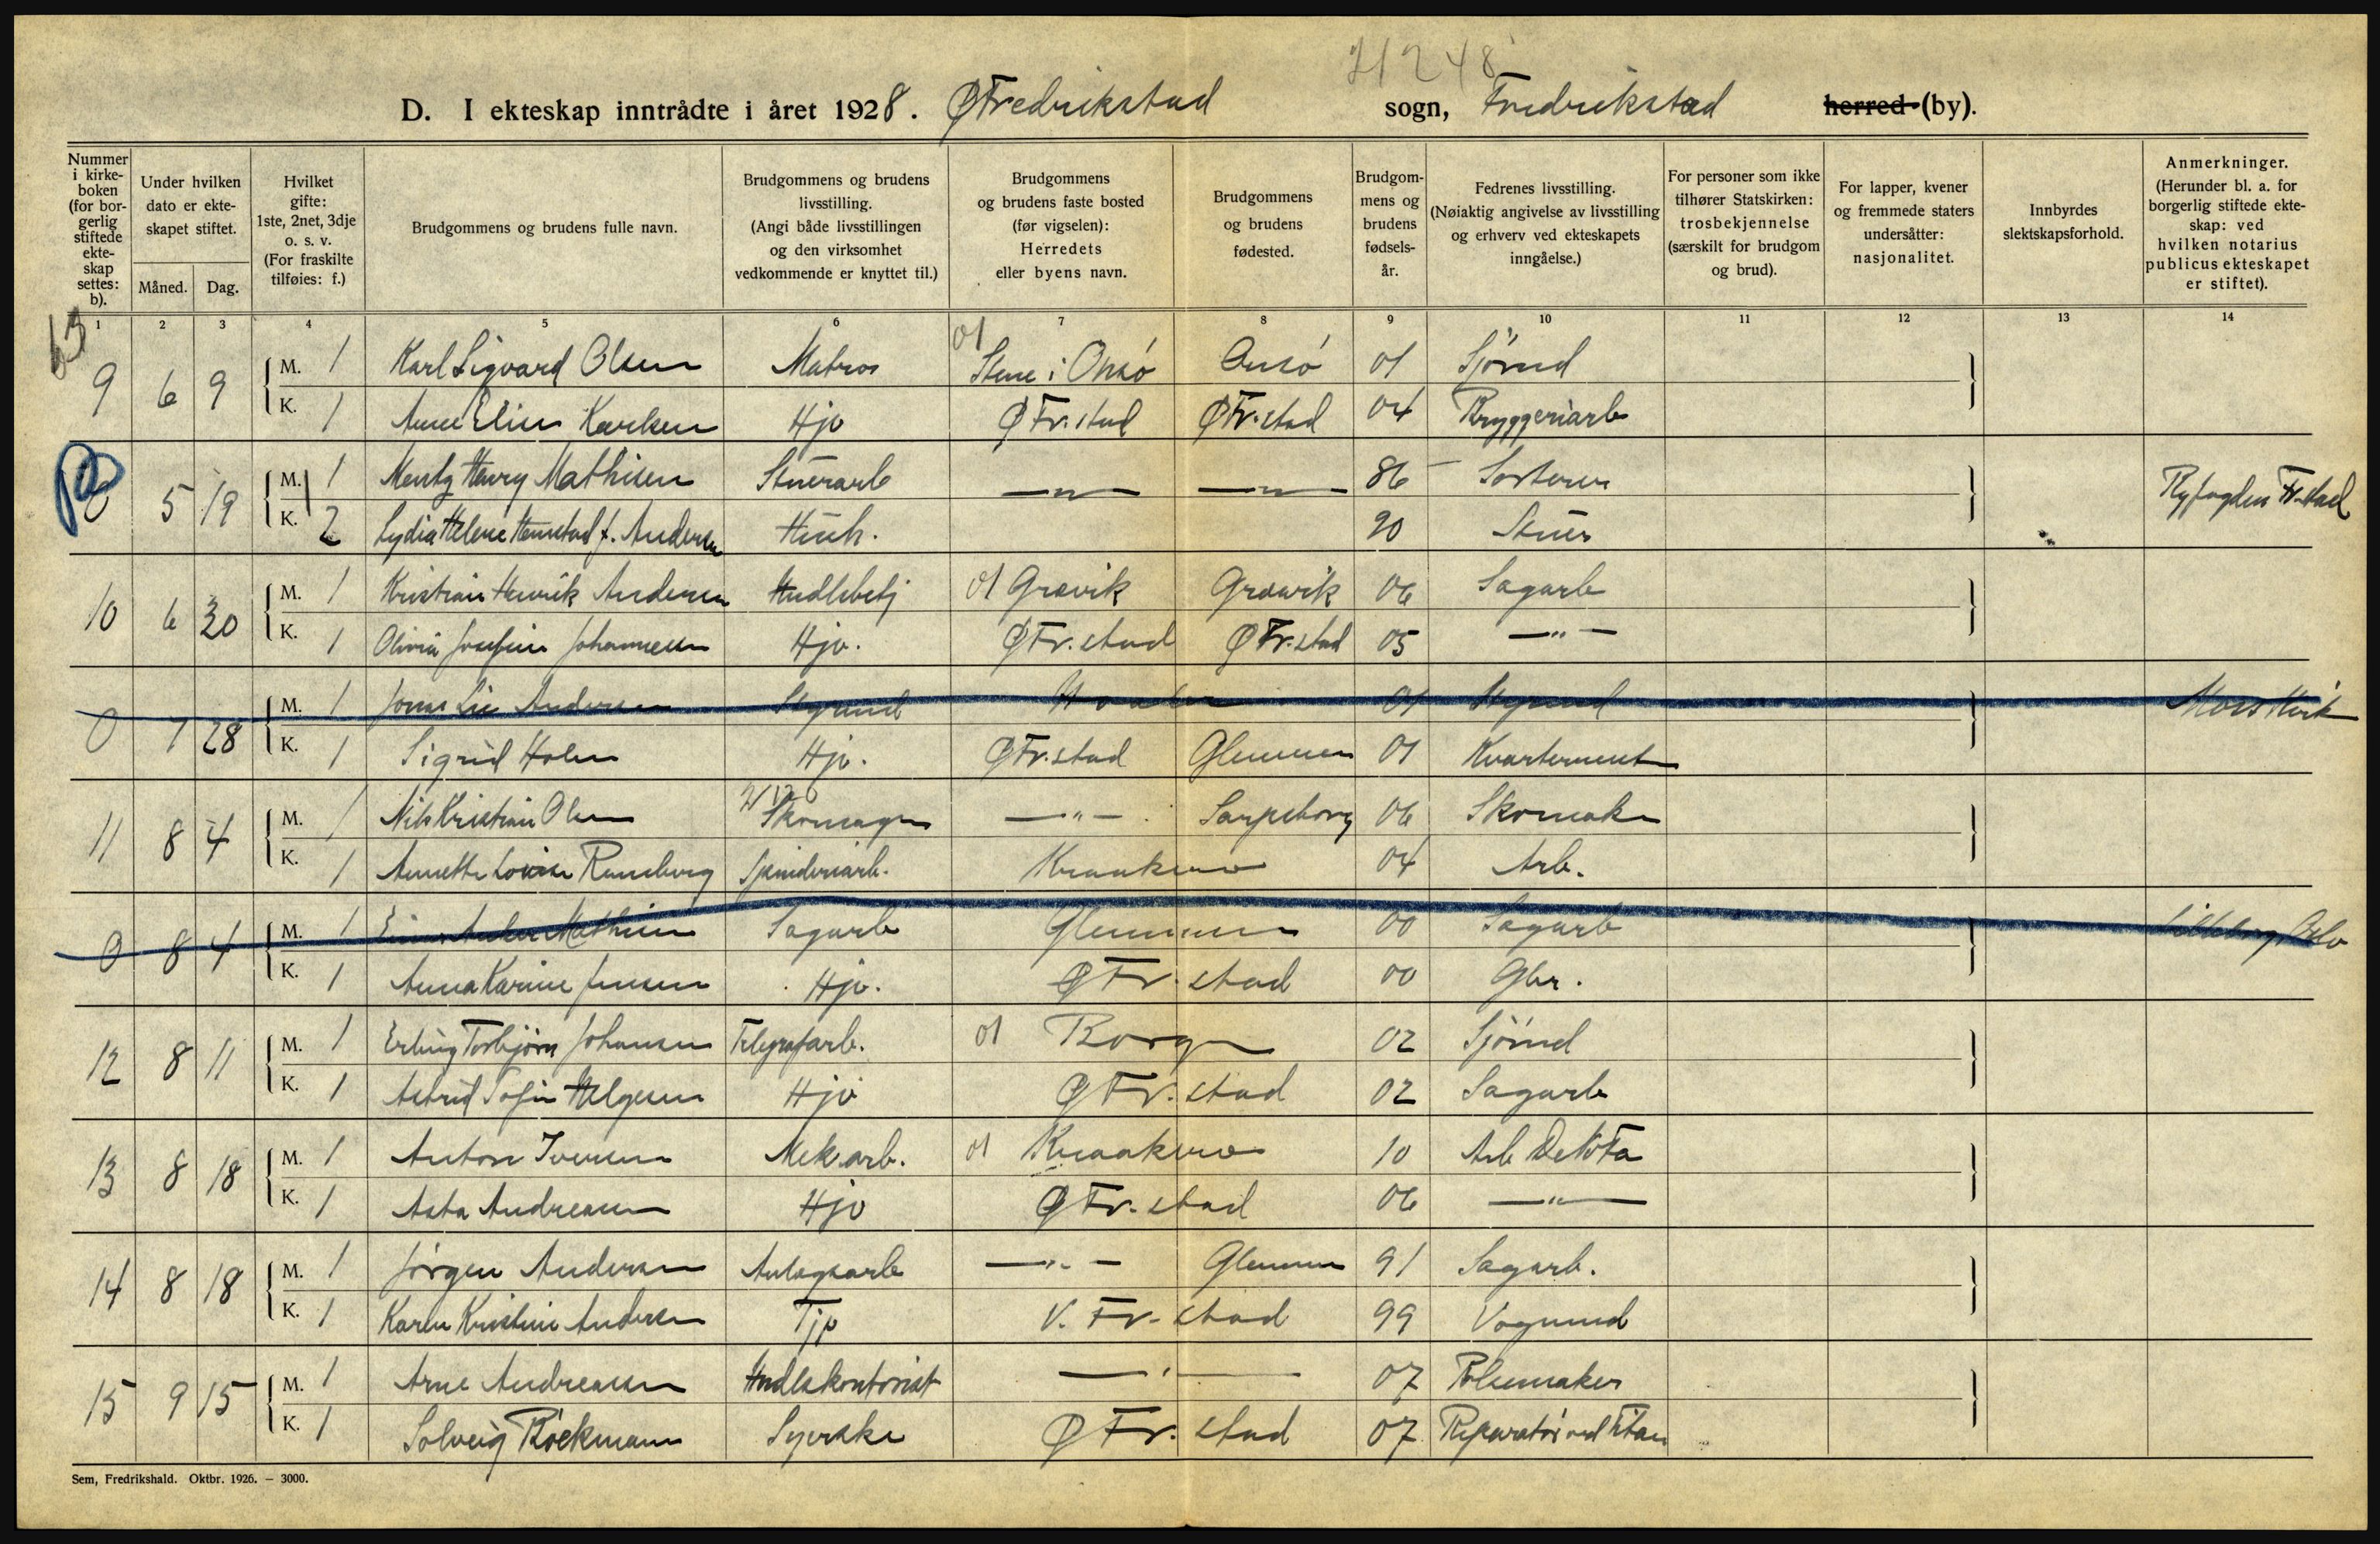 21248
D. I ekteskap inntrådte i året 1928. ØFredrikstad sogn, Fredrikstad herred (by).
Nummer i kirke-boken (for bor-gerlig stiftede ekte-skap settes: b).
Under hvilken dato er ekte-skapet stiftet.
Måned. Dag.
Hvilket gifte: 1ste, 2net, 3dje o. s. v. (For fraskilte tilføies: f.)
Brudgommens og brudens fulle navn.
Brudgommens og brudens livsstilling. (Angi både livsstillingen og den virksomhet vedkommende er knyttet til.)
Brudgommens og brudens faste bosted (før vigselen): Herredets eller byens navn.
Brudgommens og brudens fødested.
Brudgom-mens og brudens fødsels-år.
Fedrenes livsstilling. (Nøiaktig angivelse av livsstilling og erhverv ved ekteskapets inngåelse.)
For personer som ikke tilhører Statskirken: trosbekjennelse (særskilt for brudgom og brud).
For lapper, kvener og fremmede staters undersåtter: nasjonalitet.
Innbyrdes slektskapsforhold.
Anmerkninger. (Herunder bl. a. for borgerlig stiftede ekte-skap: ved hvilken notarius publicus ekteskapet er stiftet).
1 2 3 4 5 6 7 8 9 10 11 12 13 14
9 6 9 M. 1 Karl Sigvard Olsen Matros Stene i Onsø Onsø 01 Sjømd
K. 1 Anne Elise Karlsen Hjv ØFr.stad ØFr.stad 04 Bryggeriarb
5 19 M. 1 Mentz Henry Mathisen Stuerarb —"— —"— 86 Sorterer Byfogden Fr.stad
K. 2 Lydia Helene Hemstad f. Andersen Hush. 90 Stuer
10 6 30 M. 1 Kristian Henrik Andersen Hndlsbetj Græsvik Græsvik 06 Sagarb
K. 1 Olivia Josefine Johannesen Hjv. ØFr.stad ØFr.stad 05 —"—
0 7 28 M. 1 Jonas Lie Andersen Styrmd 01 Styrmd Moss Kirk
K. 1 Sigrid Holm Hjv. ØFr.stad Glemmen 01 Kvarterment
11 8 4 M. 1 Nils Kristian Olsen Skomager —"— Sarpsborg 06 Skomaker
K. 1 Annette Lovise Ramberg Spinderiarb. Kraakerø 04 Arb.
0 8 4 M. 1 Mathisen Sagarb Glemmen 00 Sagarb Oslo
K. 1 Anna Karine Jensen Hjv. ØFr.stad 00 Gbr.
12 8 11 M. 1 Erling Torbjørn Johansen Telegrafarb. Borge 02 Sjømd
K. 1 Astrid Sofie Helgesen Hjv ØFr.stad 02 Sagarb
13 8 18 M. 1 Anton Iversen Mek.arb. Kraakerø 10 Arb DeNoFa
K. 1 Asta Andreasen Hjv ØFr.stad 06 —"—
14 8 18 M. 1 Jørgen Andersen Anlegsarb —"— Glemmen 91 Sagarb.
K. 1 Karen Kristine Andersen Tjp V. Fr.stad 99 Vognmd
15 9 15 M. 1 Arne Andreasen Hndlskontorist —"— 07 Blemaker
K. 1 Solveig Böckmann Syerske ØFr.stad 07 Reparatør ved Titan
Sem, Fredrikshald. Oktbr. 1926. — 3000.